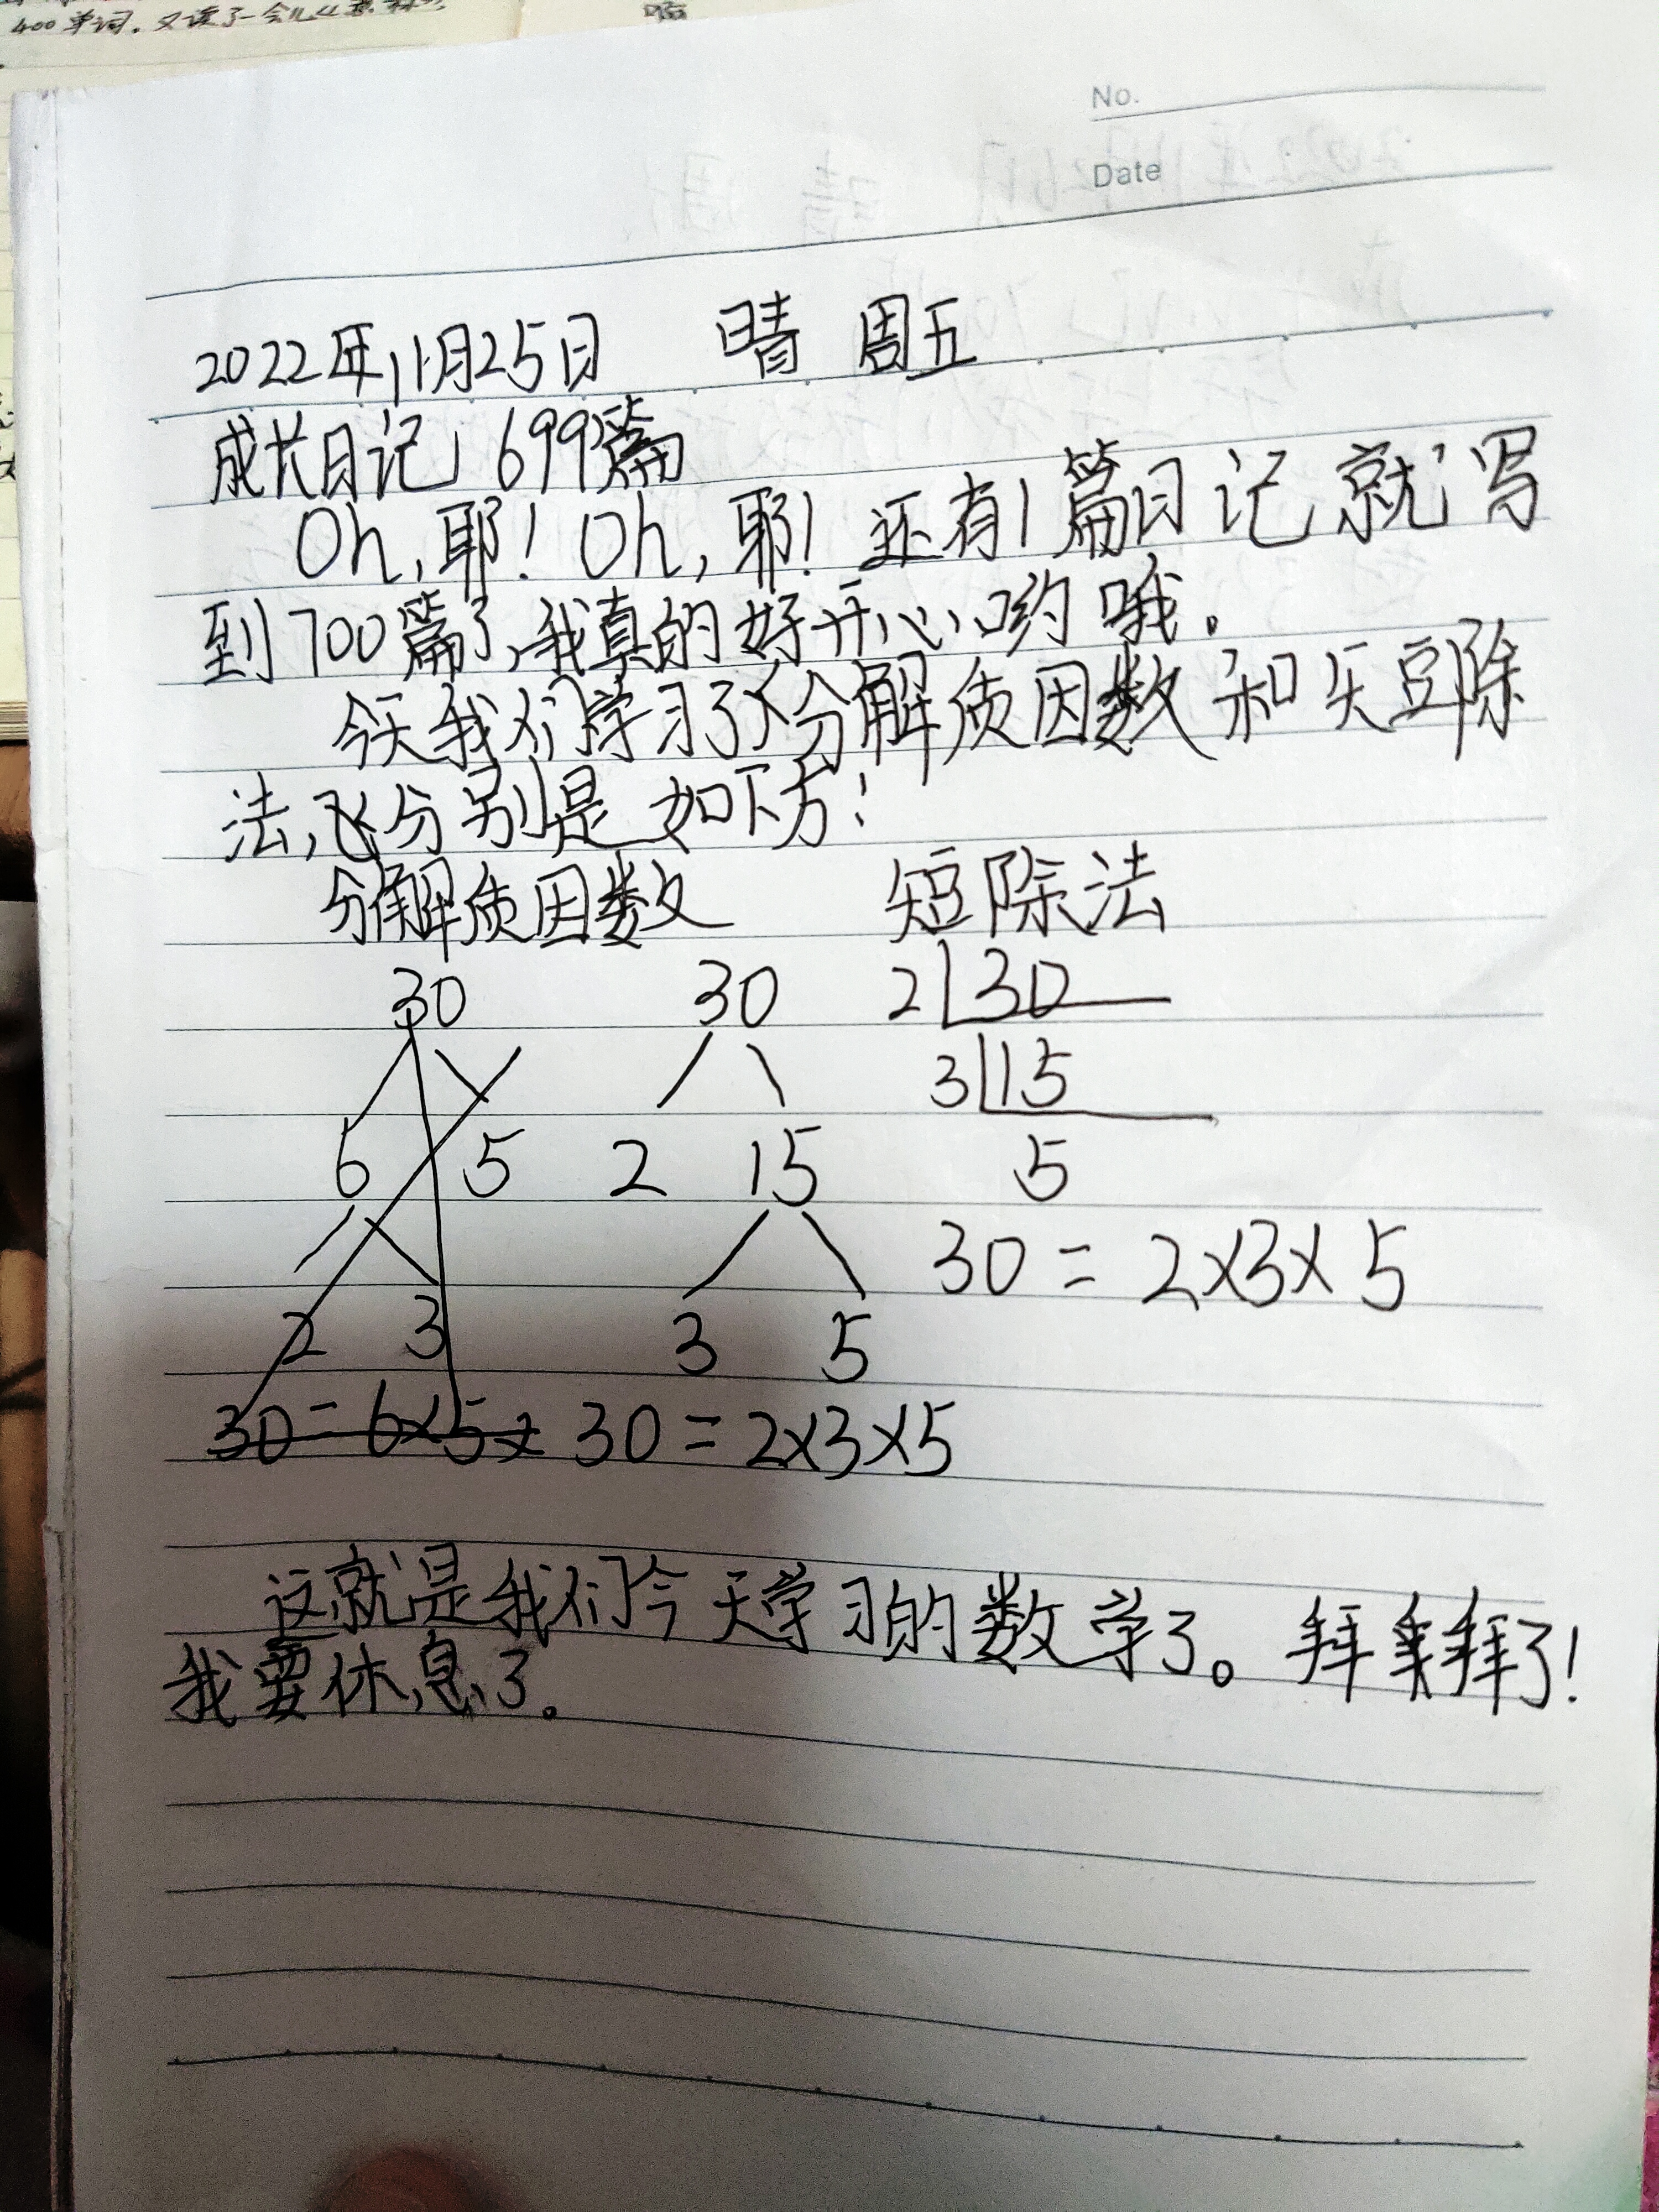 400单词,又读了一会儿
No.
Date
2022年11月25日 晴 周五
成长日记 699篇
Oh,耶!Oh,耶!还有1篇日记就写
到700篇了,我真的好开心哟哦。
今天我们学习了分解质因数和短除
法,分别是如下方:
分解质因数 短除法
30 30 2 30
3 15
6 5 2 15 5
30=2×3×5
2 3 3 5
30=6×5× 30=2×3×5
这就是我们今天学习的数学了。拜拜了!
我要休息了。